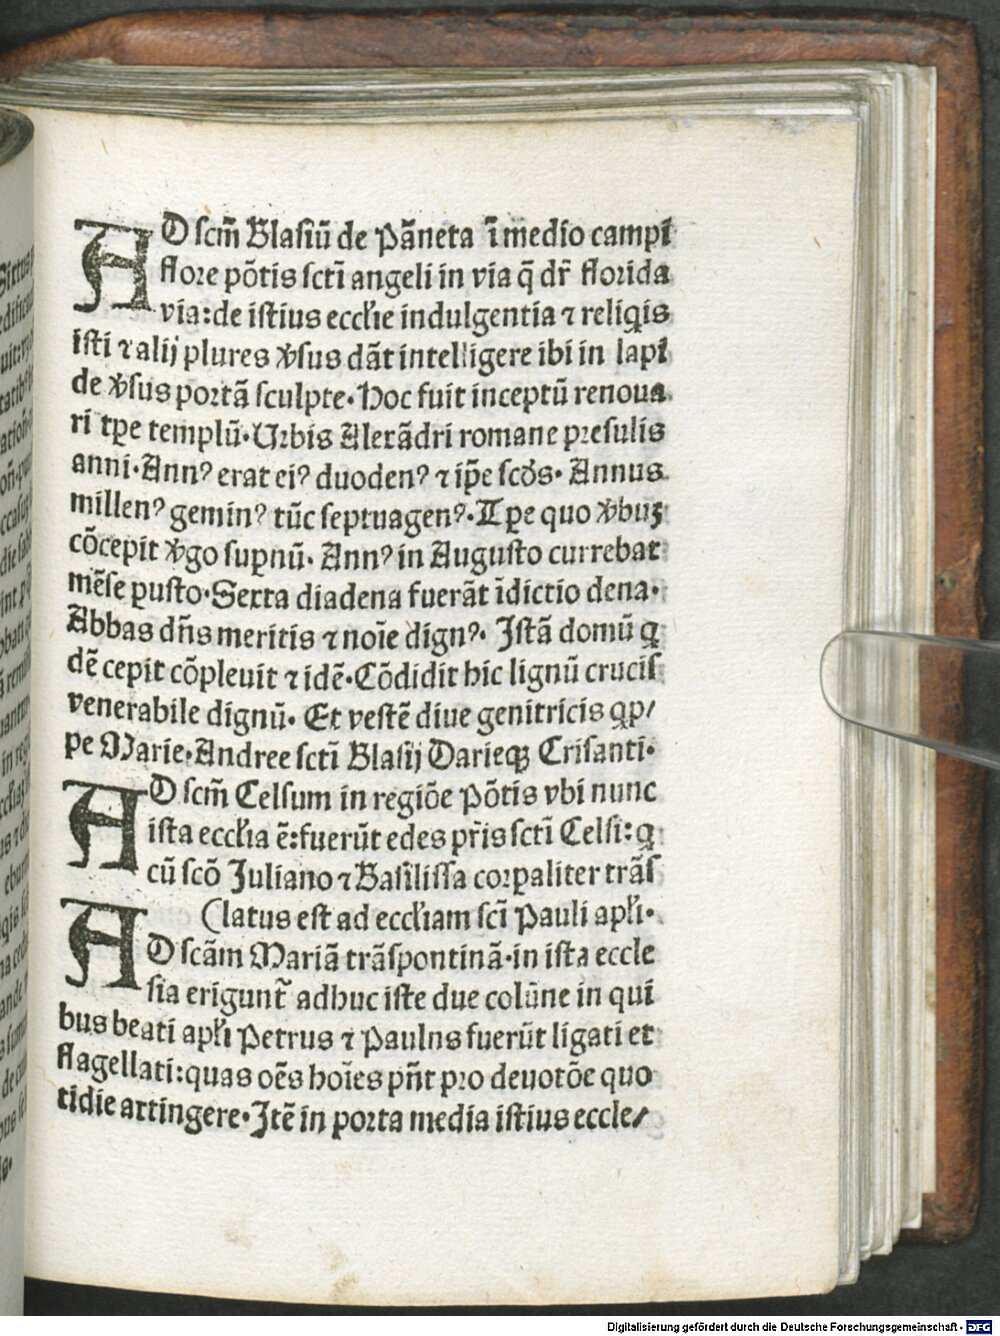 AD scm̄ Blasiū de Pāneta ī medio campi
flore pōtis scti angeli in via q̄ dr̄ florida
via: de istius eccłie indulgentia ⁊ religīs
isti ⁊ alij plures v̾sus dāt intelligere ibi in lapi
de v̾sus portā sculpte. Hoc fuit inceptū renoua
ri tꝑe templū. Urbis Alexādri romane presulis
anni. Annꝰ erat eiꝰ duodenꝰ ⁊ ip̄e scd̄s. Annus
millenꝰ geminꝰ tūc septuagenꝰ. Tꝑe quo v̾buꝫ
cōcepit v̾go suꝑnū. Annꝰ in Augusto currebat
mēse ꝑusto. Sexta diadena fuerāt īdictio dena.
Abbas dn̄s meritis ⁊ noīe dignꝰ. Istā domū q
dē cepit cōpleuit ⁊ idē. Cōdidit hic lignū crucis
venerabile dignū. Et vestē diue genitricis qꝫ/
pe Marie. Andree scti Blasij Darieqꝫ Crisanti.
AD scm̄ Celsum in regiōe Pōtis vbi nunc
ista eccłia ē: fuerūt edes pr̄is scti Celsi: q
cū scō Juliano ⁊ Basilissa corꝑaliter trās
(latus est ad eccłiam sci Pauli apłi.
AD scām Mariā trāspontinā. in ista eccle
sia erigunt̄ adhuc iste due colūne in qui
bus beati apłi Petrus ⁊ Paulns fuerūt ligati et
flagellati: quas oēs hoīes pn̄t pro deuotōe quo
tidie attingere. Itē in porta media istius eccle/
Digitalisierung gefördert durch die Deutsche Forschungsgemeinschaft - DFG